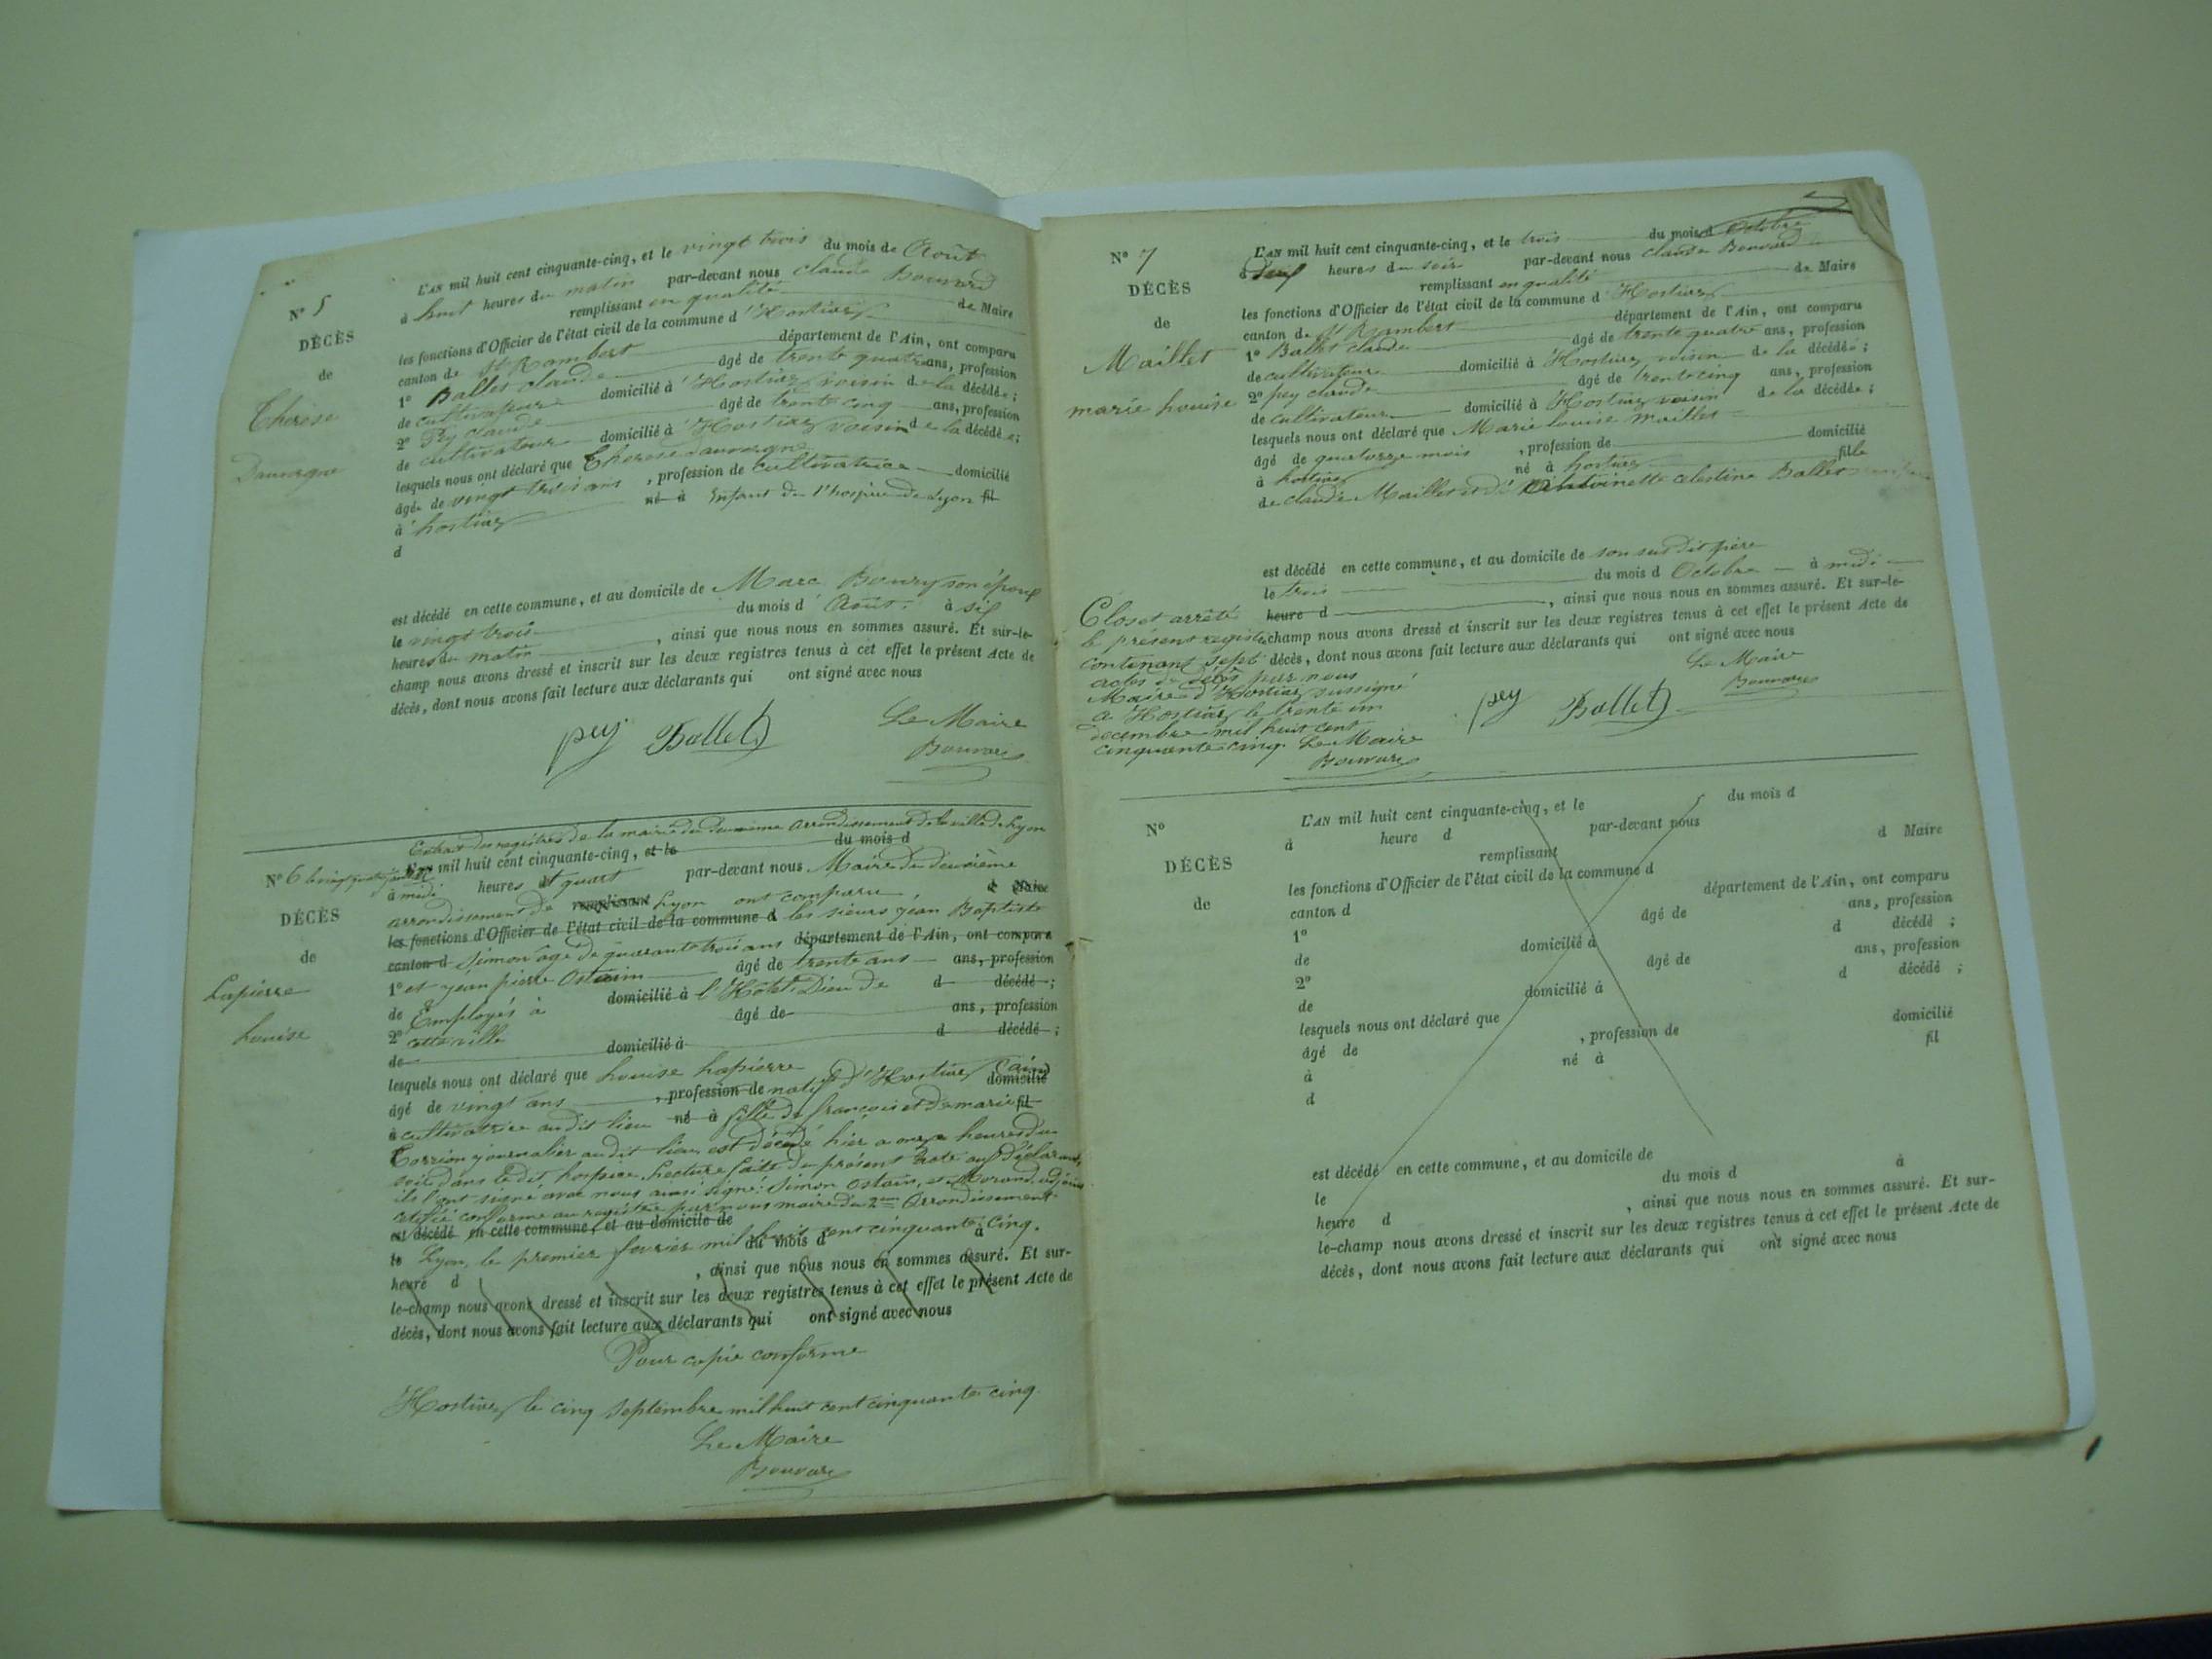 N° 5
DÉCÈS
de
Therese
Dauvergne
L'AN mil huit cent cinquante-cinq, et le vingt trois du mois de Août
à huit heures du matin par-devant nous claude Bouvard
remplissant en qualité de Maire
les fonctions d'Officier de l'état civil de la commune d'Hostiaz
canton de St Rambert département de l'Ain, ont comparu
1° Ballet claude âgé de trente quatre ans, profession
de cultivateur domicilié à Hostiaz voisin de la décédée;
2° Pey claude âgé de trente cinq ans, profession
de cultivateur domicilié à Hostiaz voisin de la décédée;
lesquels nous ont déclaré que Therese Dauvergne
âgée de vingt trois ans, profession de cultivatrice domicilié
à hostiaz né à Enfant de l'hospice de Lyon fil
d
est décédé en cette commune, et au domicile de Marc Bouvry son époux
le vingt trois du mois d'Août à six
heures du matin, ainsi que nous nous en sommes assuré. Et sur-le-
champ nous avons dressé et inscrit sur les deux registres tenus à cet effet le présent Acte de
décès, dont nous avons fait lecture aux déclarants qui ont signé avec nous
pey Ballet Le Maire
Bouvard
Extrait des registres de la mairie du deuxième arrondissement de la ville de Lyon
N° 6
DÉCÈS
de
Lapierre
Louise
L'AN mil huit cent cinquante-cinq, et le du mois d
à midi heures et quart par-devant nous Maire du deuxième
arrondissement de remplissant Lyon ont comparu d Maire
les fonctions d'Officier de l'état civil de la commune d les sieurs jean Baptiste
canton d Simon âgé de quarante trois ans département de l'Ain, ont comparu
1° et jean pierre Ostain âgé de trente ans ans, profession
de Employés à domicilié à l'Hotel Dieu de d décédé;
2° cette ville âgé de ans, profession
de domicilié à d décédé;
lesquels nous ont déclaré que Louise Lapierre
âgé de vingt ans, profession de natif d'Hostiaz (ain) domicilié
à cultivatrice audit lieu né à fille de françois et de marie fil
journalier audit lieu est décédé hier a onze heures du
soir dans ledit hospice. Lecture faite du présent acte aux déclarants,
ils l'ont signé avec nous ainsi signé: Simon Ostain, et Morand, adjoint
certifié conforme au registre par nous maire du 2me Arrondissement
est décédé en cette commune, et au domicile de
le Lyon, le premier fevrier mil huit cent cinquante cinq. du mois d à
heure d, ainsi que nous nous en sommes assuré. Et sur-
le-champ nous avons dressé et inscrit sur les deux registres tenus à cet effet le présent Acte de
décès, dont nous avons fait lecture aux déclarants qui ont signé avec nous
Pour copie conforme
Hostiaz le cinq Septembre mil huit cent cinquante cinq.
Le Maire
Bouvard
N° 7
DÉCÈS
de
Maillet
marie Louise
L'AN mil huit cent cinquante-cinq, et le trois du mois d Octobre
à heures du soir par-devant nous claude Bouvard
remplissant en qualité de Maire
les fonctions d'Officier de l'état civil de la commune d'Hostiaz
canton de St Rambert département de l'Ain, ont comparu
1° Ballet claude âgé de trente quatre ans, profession
de cultivateur domicilié à Hostiaz voisin de la décédée;
2° pey claude âgé de trente cinq ans, profession
de cultivateur domicilié à Hostiaz voisin de la décédée;
lesquels nous ont déclaré que Marie louise maillet
âgé de quatorze mois, profession de domicilié
à hostiaz né à hostiaz fille
de claude Maillet et d'Antoinette celestine Ballet
est décédé en cette commune, et au domicile de son sus dit père
le trois du mois d Octobre à midi
heure d, ainsi que nous nous en sommes assuré. Et sur-le-
champ nous avons dressé et inscrit sur les deux registres tenus à cet effet le présent Acte de
décès, dont nous avons fait lecture aux déclarants qui ont signé avec nous
pey Ballet Le Maire
Bouvard
Clos et arrêté
le présent registre
contenant sept
actes de décès par nous
Maire d'Hostiaz sussigné
a Hostiaz le trente un
decembre mil huit cent
cinquante cinq. Le Maire
Bouvard
N°
DÉCÈS
de
L'AN mil huit cent cinquante-cinq, et le du mois d
à heure d par-devant nous
remplissant d Maire
les fonctions d'Officier de l'état civil de la commune d
canton d département de l'Ain, ont comparu
1° âgé de ans, profession
de domicilié à d décédé;
2° âgé de ans, profession
de domicilié à d décédé;
lesquels nous ont déclaré que
âgé de, profession de domicilié
à né à fil
d
est décédé en cette commune, et au domicile de
le du mois d à
heure d, ainsi que nous nous en sommes assuré. Et sur-
le-champ nous avons dressé et inscrit sur les deux registres tenus à cet effet le présent Acte de
décès, dont nous avons fait lecture aux déclarants qui ont signé avec nous